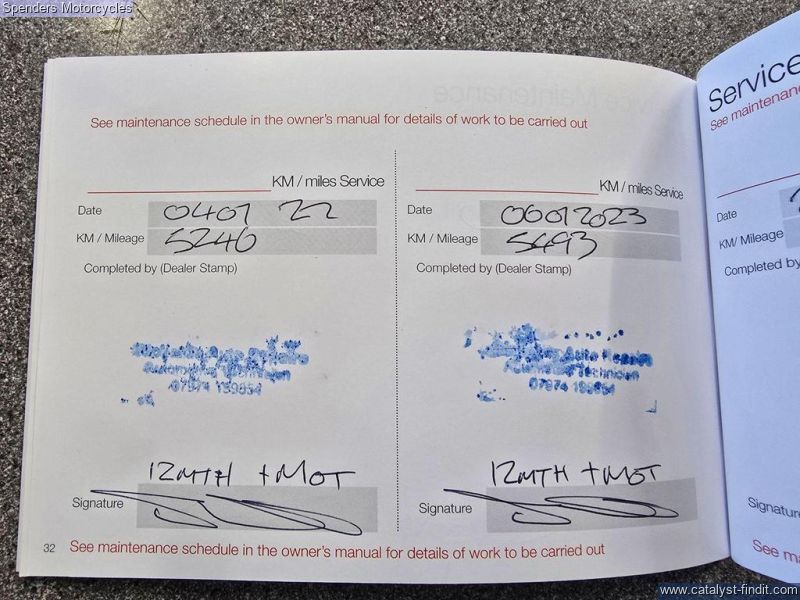 Spenders Motorcycles
See maintenance schedule in the owner's manual for details of work to be carried out
KM / miles Service
Date 040122
KM / Mileage 5240
Completed by (Dealer Stamp)
Automotive Technician
07974
12MTH + MOT
Signature
KM / miles Service
Date 06012023
KM / Mileage 5493
Completed by (Dealer Stamp)
Auto Repairs
Automotive Technician
07974
12MTH + MOT
Signature
32 See maintenance schedule in the owner's manual for details of work to be carried out
Service
See maintenan
Date
KM/ Mileage
Completed by
Signatu
See ma
www.catalyst-findit.com